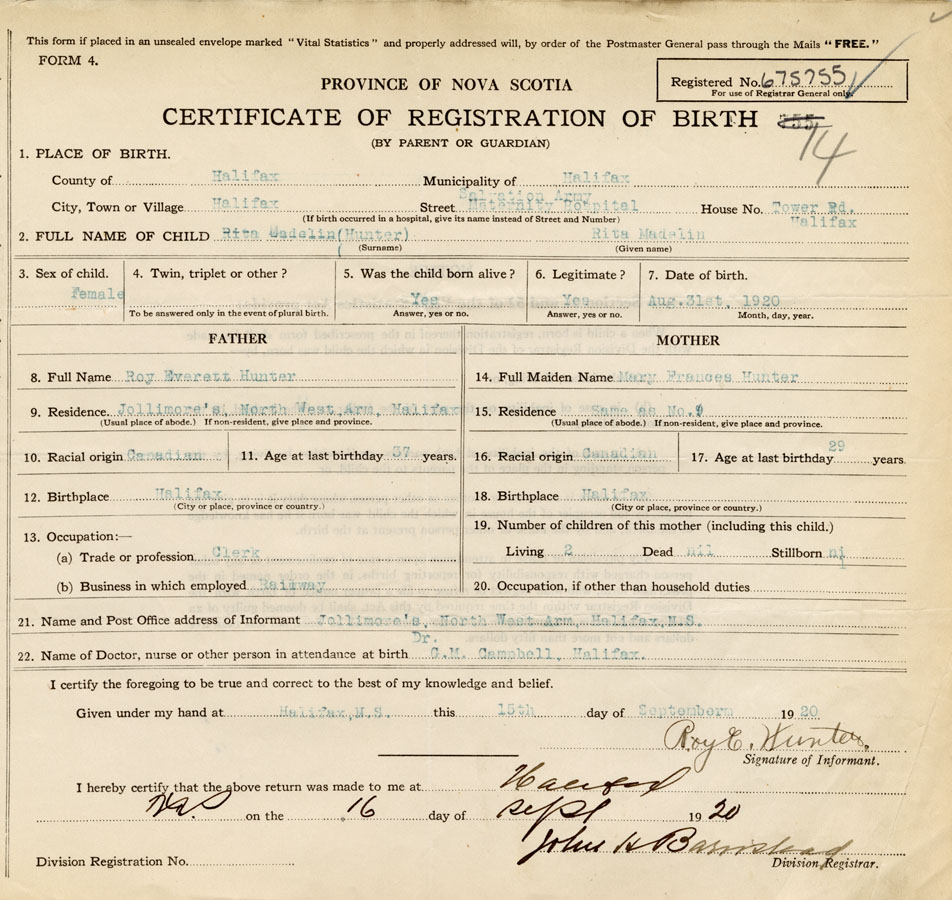 This form if placed in an unsealed envelope marked "Vital Statistics" and properly addressed will, by order of the Postmaster General pass through the Mails "FREE."
FORM 4.
PROVINCE OF NOVA SCOTIA
Registered No. 6757551
For use of Registrar General only.
CERTIFICATE OF REGISTRATION OF BIRTH
14
(BY PARENT OR GUARDIAN)
1. PLACE OF BIRTH.
County of Halifax Municipality of Halifax
Salvation Army
City, Town or Village Halifax Street Maternity Hospital House No. Tower Rd.
Halifax
(If birth occurred in a hospital, give its name instead of Street and Number)
2. FULL NAME OF CHILD Rita Madelin (Hunter) Rita Madelin
(Surname) (Given name)
3. Sex of child. 4. Twin, triplet or other? 5. Was the child born alive? 6. Legitimate? 7. Date of birth.
Female Yes Yes Aug. 31st, 1920
To be answered only in the event of plural birth. Answer, yes or no. Answer, yes or no. Month, day, year.
FATHER MOTHER
8. Full Name Roy Everett Hunter 14. Full Maiden Name Mary Frances Hunter
9. Residence. Jollimore's, North West Arm, Halifax 15. Residence Same as No. 9
(Usual place of abode.) If non-resident, give place and province. (Usual place of abode.) If non-resident, give place and province.
10. Racial origin Canadian 11. Age at last birthday 37 years. 16. Racial origin Canadian 17. Age at last birthday 29 years.
12. Birthplace Halifax 18. Birthplace Halifax
(City or place, province or country.) (City or place, province or country.)
13. Occupation:— 19. Number of children of this mother (including this child.)
(a) Trade or profession Clerk Living 2 Dead nil Stillborn ni
l
(b) Business in which employed Railway 20. Occupation, if other than household duties
21. Name and Post Office address of Informant Jollimore's, North West Arm, Halifax, N.S.
Dr.
22. Name of Doctor, nurse or other person in attendance at birth G.M. Campbell, Halifax.
I certify the foregoing to be true and correct to the best of my knowledge and belief.
Given under my hand at Halifax, N.S. this 15th day of Septemberm 1920
Roy E. Hunter.
Signature of Informant.
I hereby certify that the above return was made to me at
N.S. on the 16 day of Sept 1920
John H Barnstead
Division Registration No. Division Registrar.